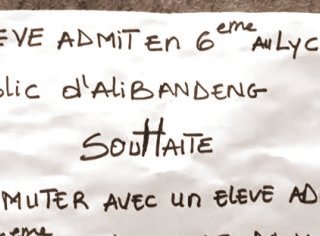 EVE ADMIT En 6eme AU LYC
blic d'ALIBANDENG
SOUHAITE
MUTER AVEC un ELEVE AD
eme